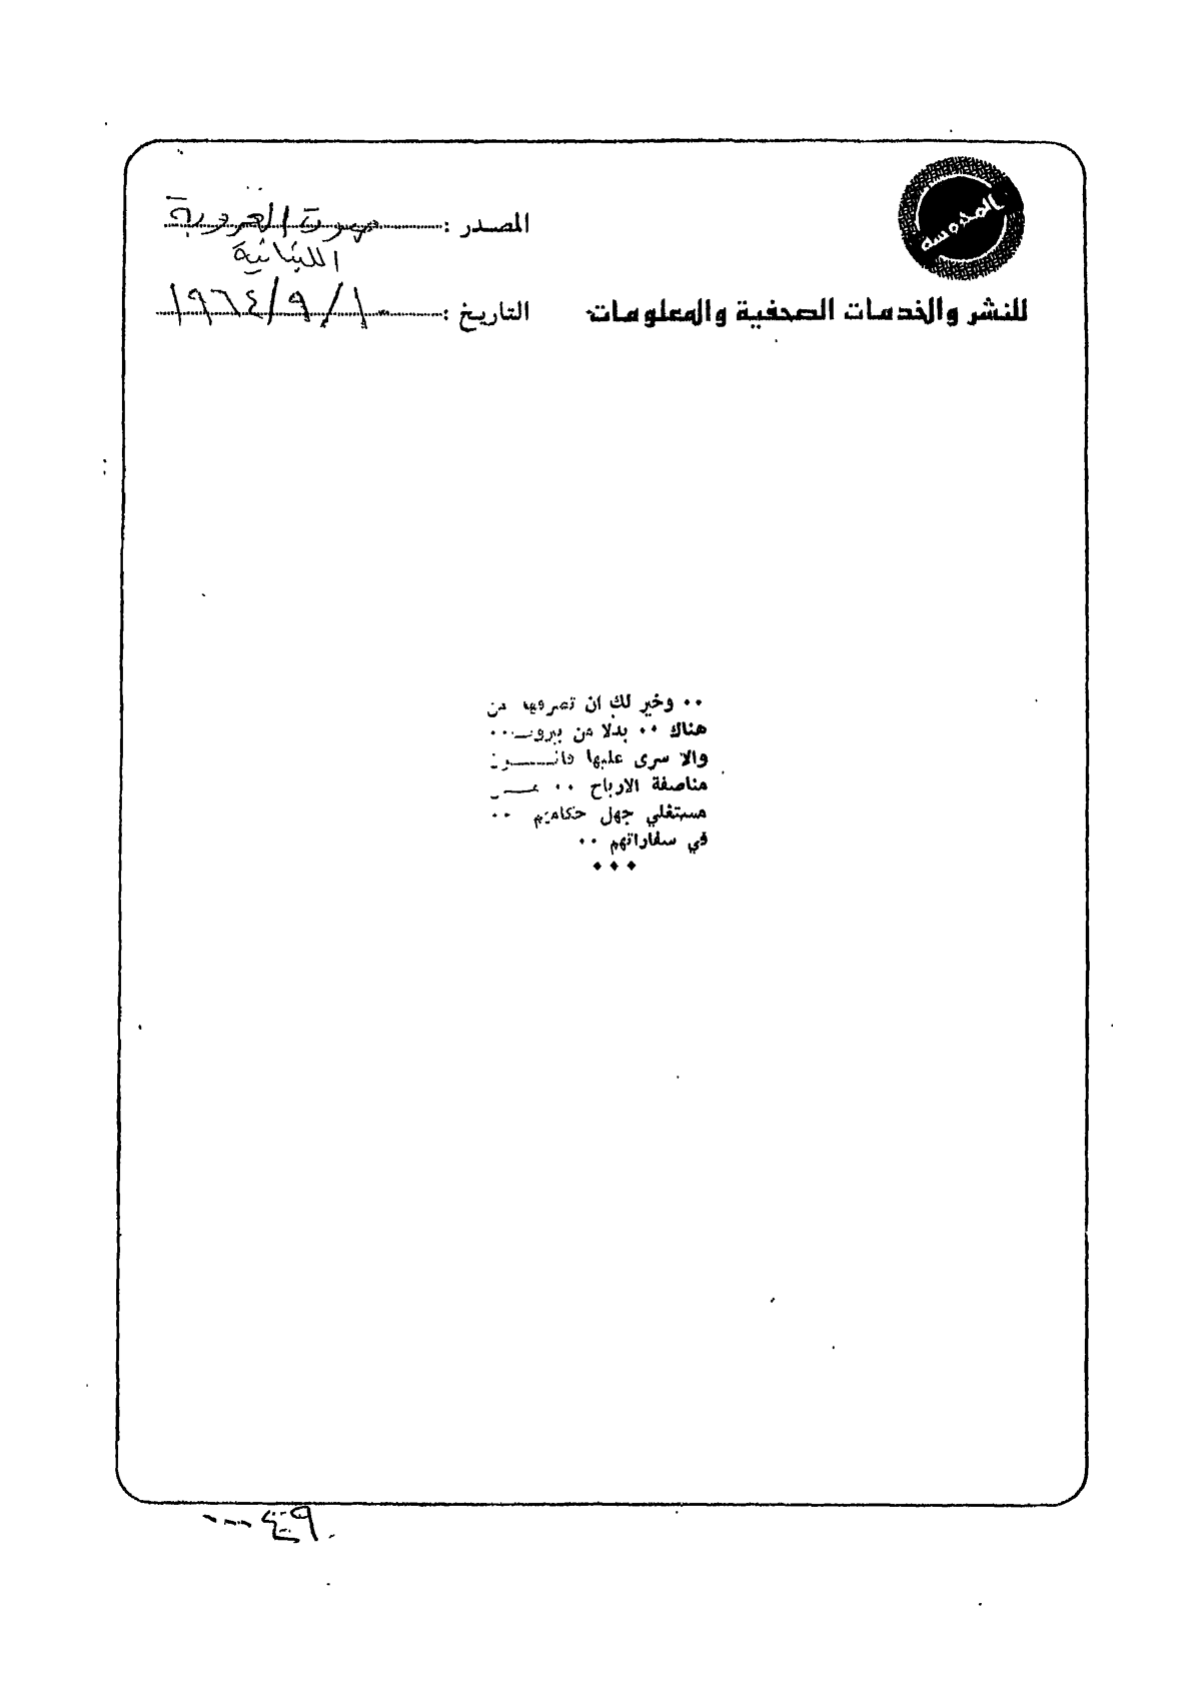 المحروسة
للنشر والخدمات الصحفية والمعلومات
المصدر : صوت العروبة
اللبنانية
التاريخ : ١٠/٩/١٩٦٤
٠٠ وخير لك ان تصرفها من
هناك ٠٠ بدلا من بيروت ٠٠
والا سرى عليها قانون
مناصفة الارباح ٠٠
مستغلي جهل حكامهم ٠٠
في سفاراتهم ٠٠
٠٠٠